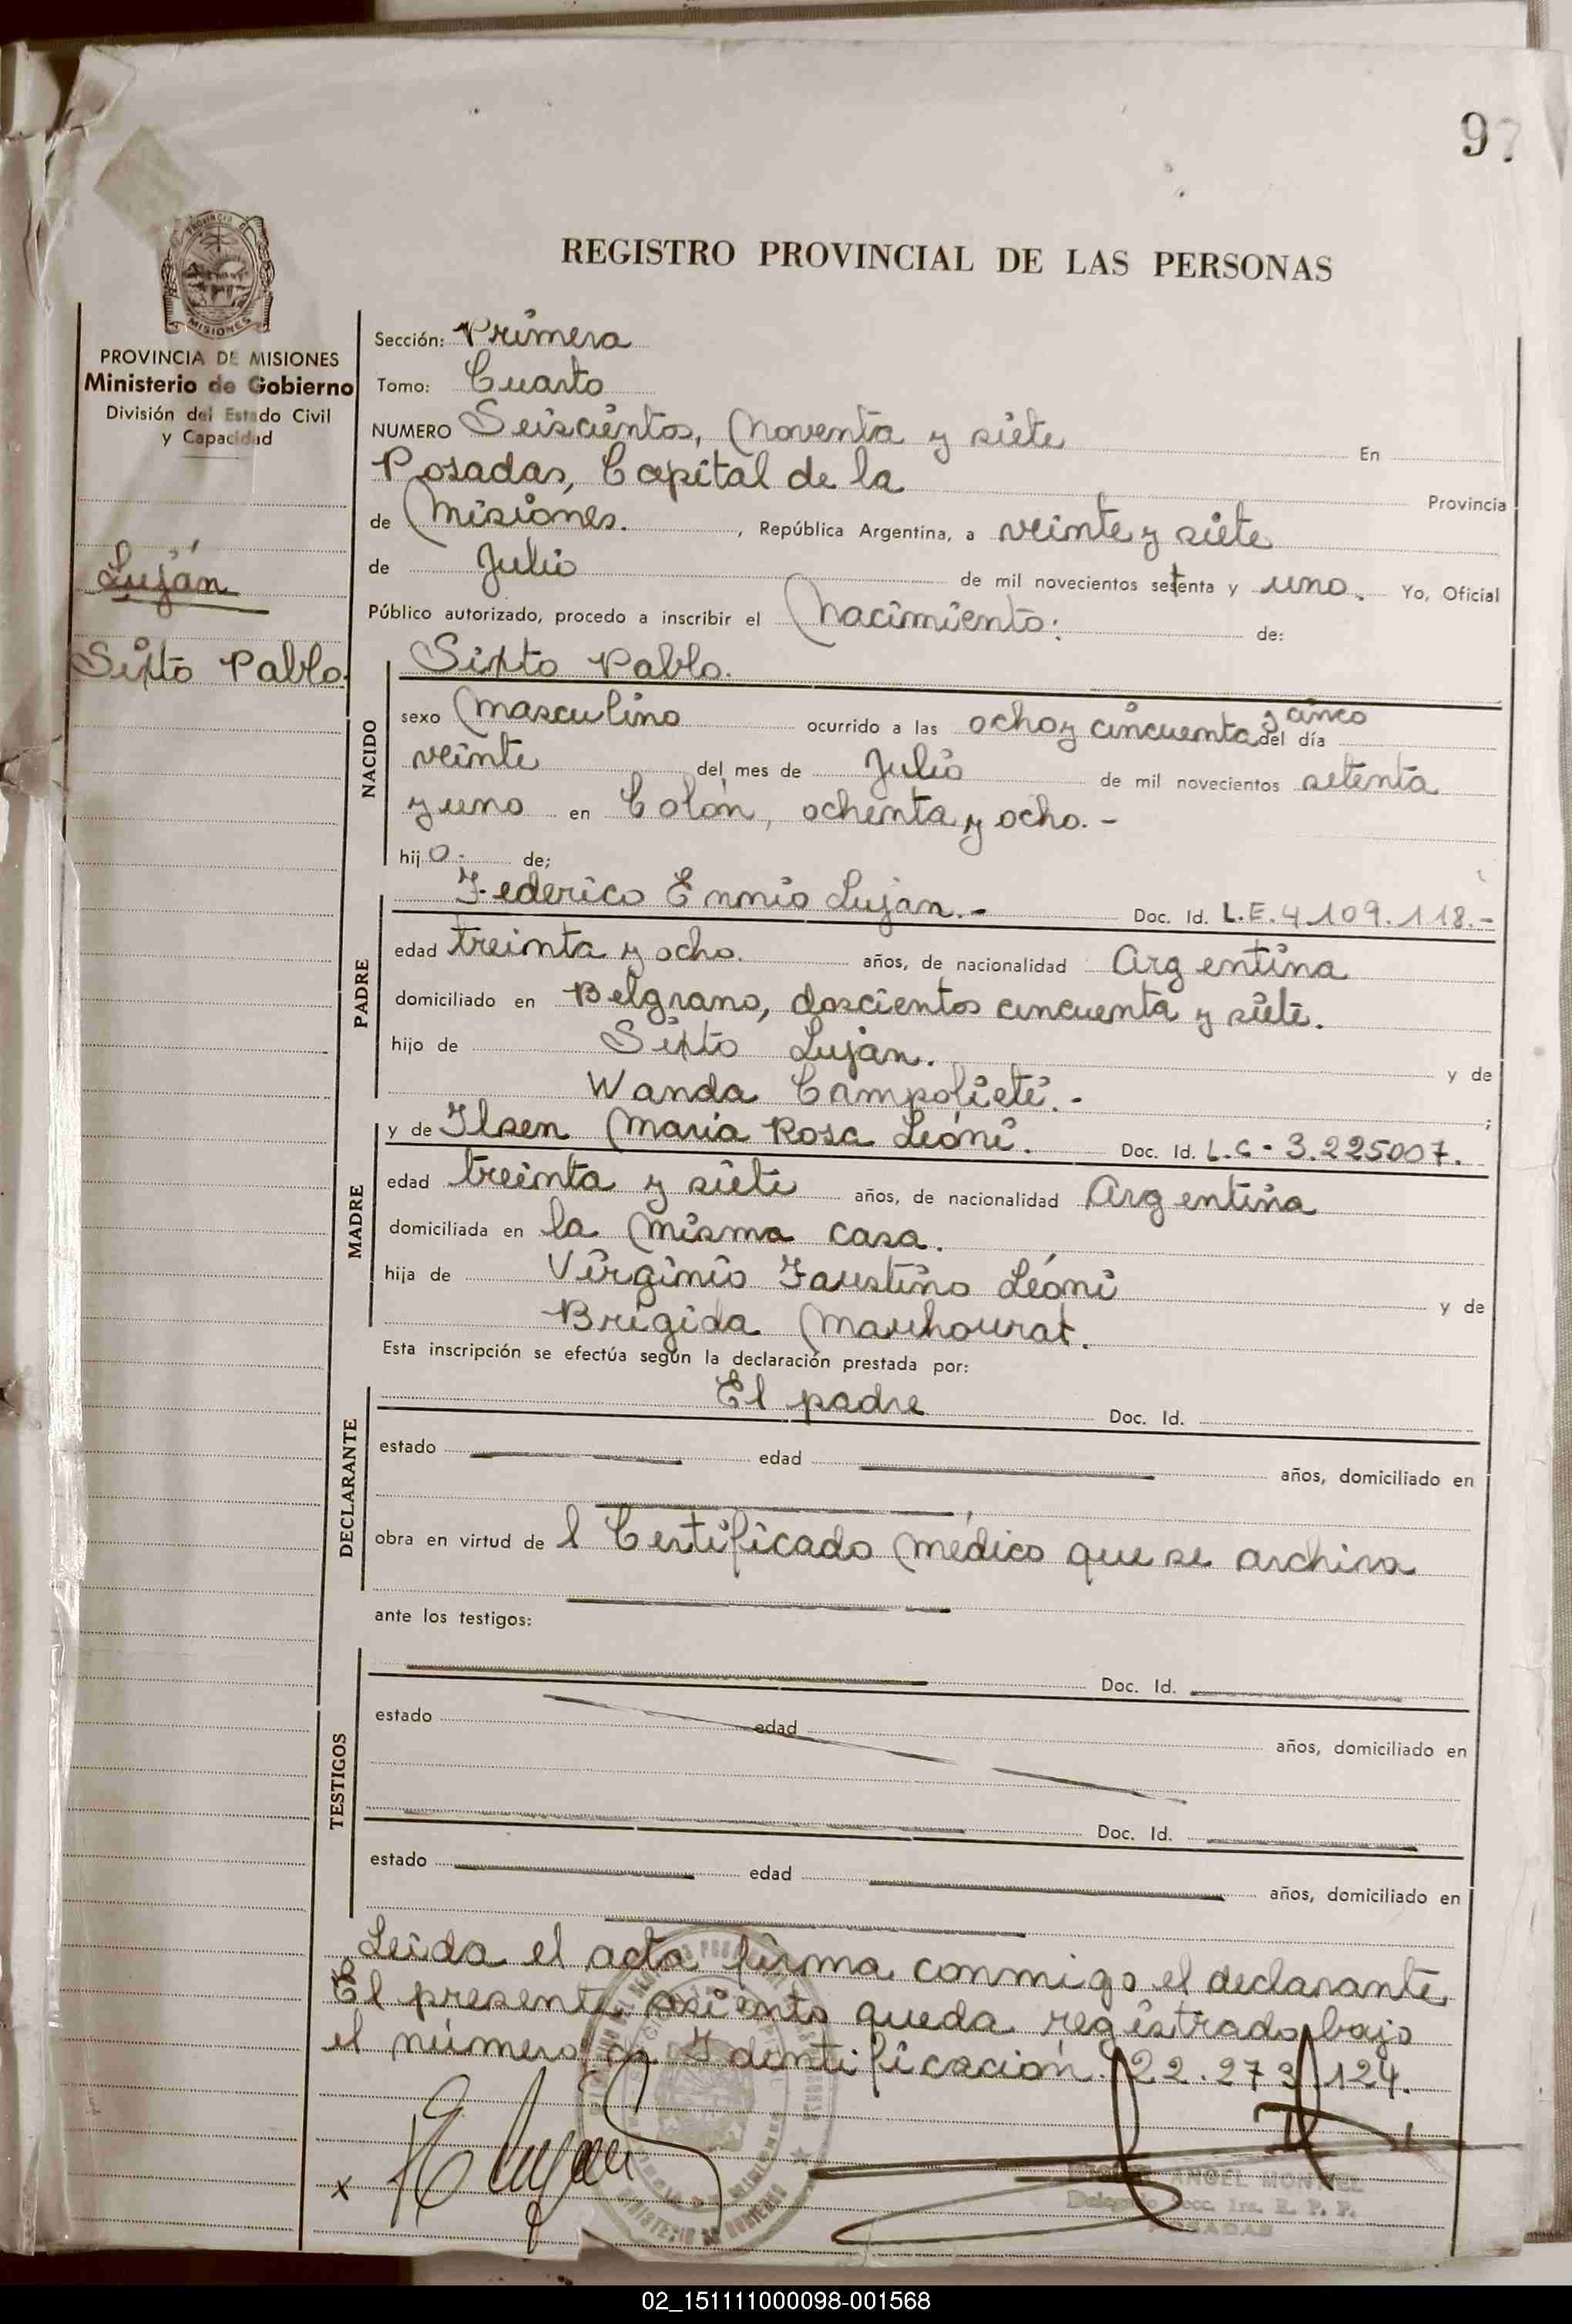 97
REGISTRO PROVINCIAL DE LAS PERSONAS
PROVINCIA DE
MISIONES
PROVINCIA DE MISIONES
Ministerio de Gobierno
División del Estado Civil
y Capacidad
Luján
Sixto Pablo.
Sección: Primera
Tomo: Cuarto
NUMERO Seiscientos, Noventa y siete En
Posadas, Capital de la Provincia
de Misiones. , República Argentina, a veinte y siete
de Julio de mil novecientos setenta y uno. Yo, Oficial
Público autorizado, procedo a inscribir el Nacimiento: de:
NACIDO
Sixto Pablo.
sexo Masculino ocurrido a las ocho y cincuenta y cinco del día
veinte del mes de Julio de mil novecientos setenta
y uno en Colón, ochenta y ocho.-
hijo. de;
PADRE
Federico Ennio Lujan.- Doc. Id. L.E. 4.109.118.-
edad treinta y ocho. años, de nacionalidad Argentina
domiciliado en Belgrano, doscientos cincuenta y siete.
hijo de Sixto Lujan. y de
Wanda Campolieti.- ;
MADRE
y de Ilsen María Rosa Leóni. Doc. Id. L.C- 3.225007.
edad treinta y siete años, de nacionalidad Argentina
domiciliada en la misma casa.
hija de Virginio Faustino Léoni y de
Brigida Mauhourat.
Esta inscripción se efectúa según la declaración prestada por:
DECLARANTE
El padre Doc. Id.
estado edad años, domiciliado en
obra en virtud del Certificado médico que se archiva
ante los testigos:
TESTIGOS
Doc. Id.
estado edad años, domiciliado en
Doc. Id.
estado edad años, domiciliado en
Leida el acta firma conmigo el declarante
El presente asiento queda registrado bajo
el número de Identificación. 22.273.124.
x
ANGEL MONTIEL
Delegado Secc. 1ra. R. P. P.
POSADAS
02_151111000098-001568